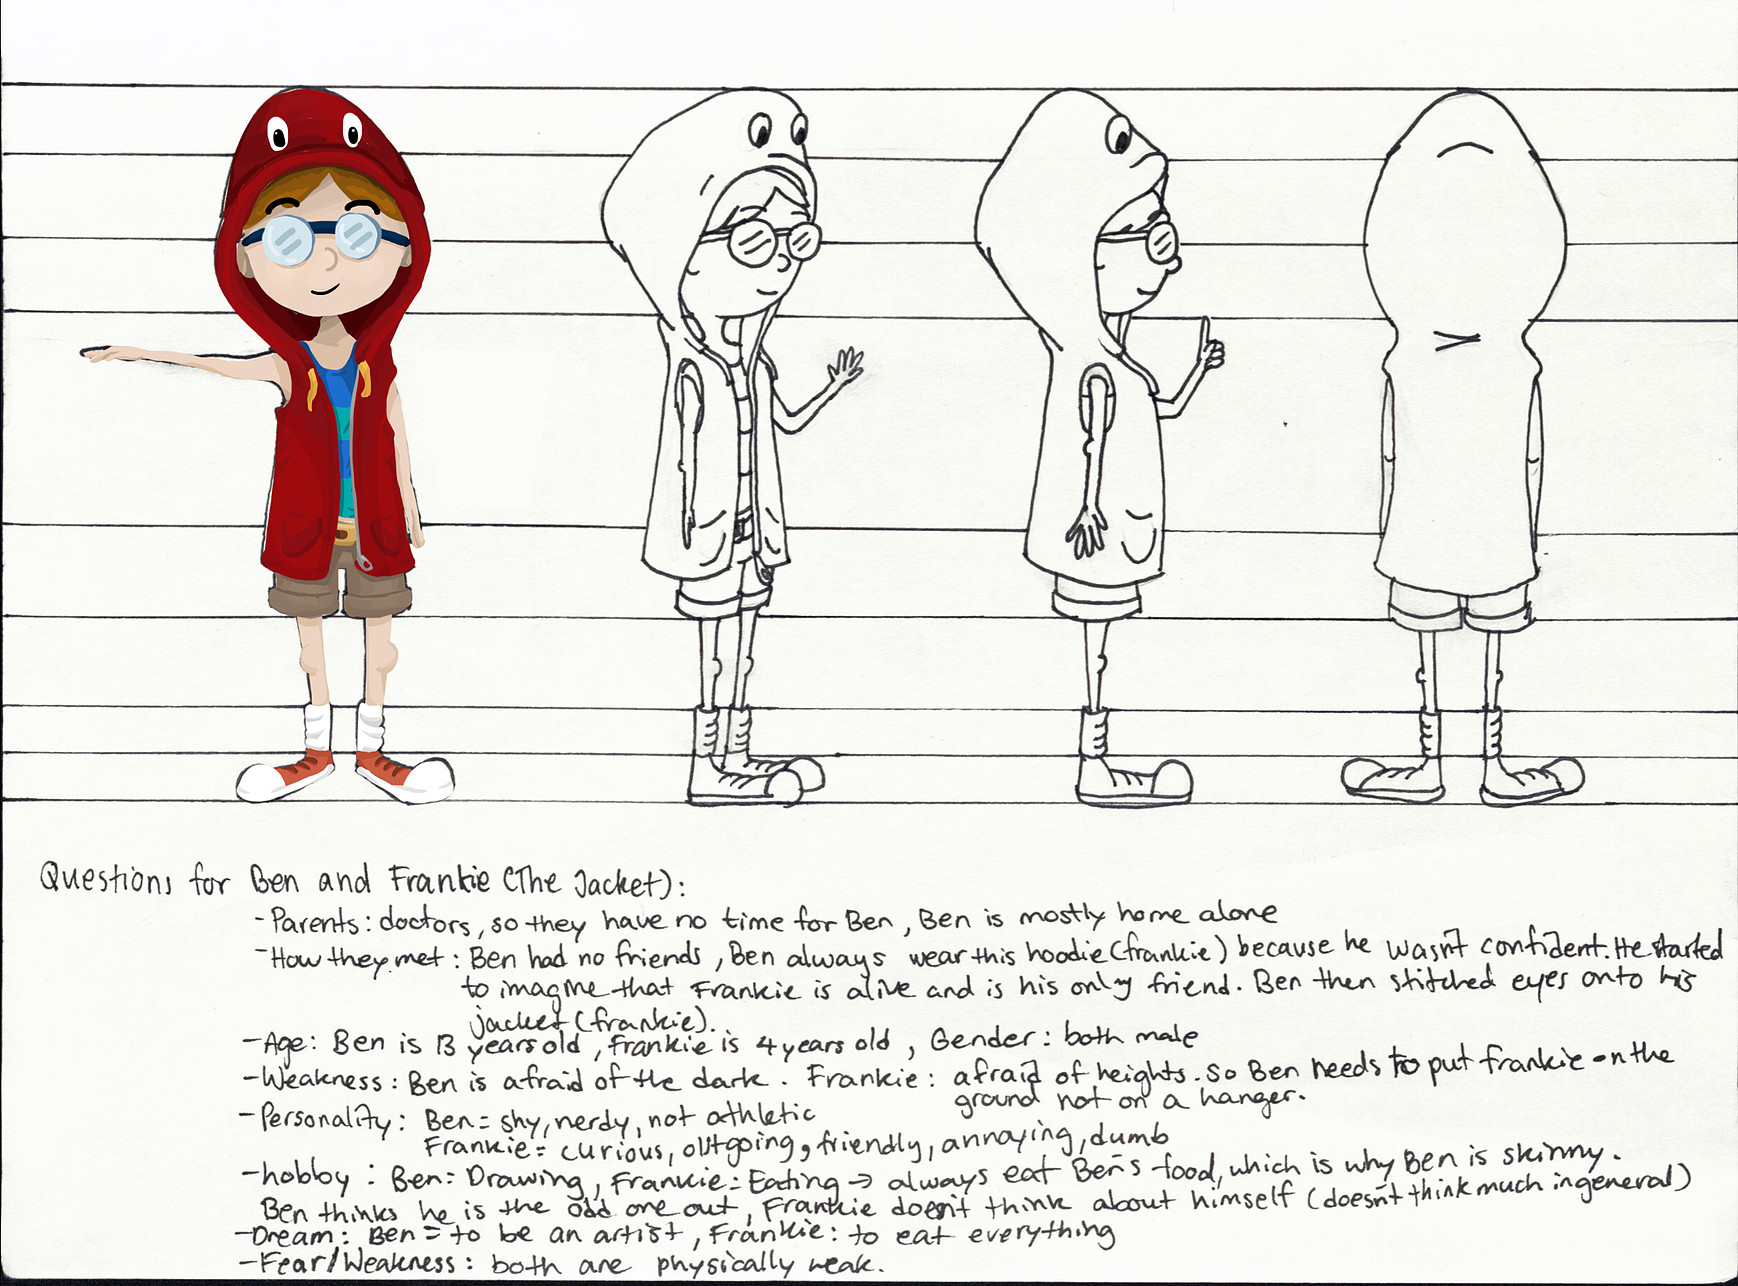 Questions for Ben and Frankie (The Jacket):
- Parents: doctors, so they have no time for Ben, Ben is mostly home alone
- How they met: Ben had no friends, Ben always wear this hoodie (frankie) because he wasn't confident. He started
to imagine that Frankie is alive and is his only friend. Ben then stitched eyes onto his
jacket (frankie).
- Age: Ben is 13 years old, frankie is 4 years old, Gender: both male
- Weakness: Ben is afraid of the dark. Frankie: afraid of heights. So Ben needs to put frankie on the
ground not on a hanger.
- Personality: Ben = shy, nerdy, not athletic
Frankie = curious, outgoing, friendly, annoying, dumb
- hobby: Ben = Drawing, Frankie = Eating → always eat Ben's food, which is why Ben is skinny.
Ben thinks he is the odd one out, Frankie doesn't think about himself (doesn't think much in general)
- Dream: Ben = to be an artist, Frankie: to eat everything
- Fear/Weakness: both are physically weak.